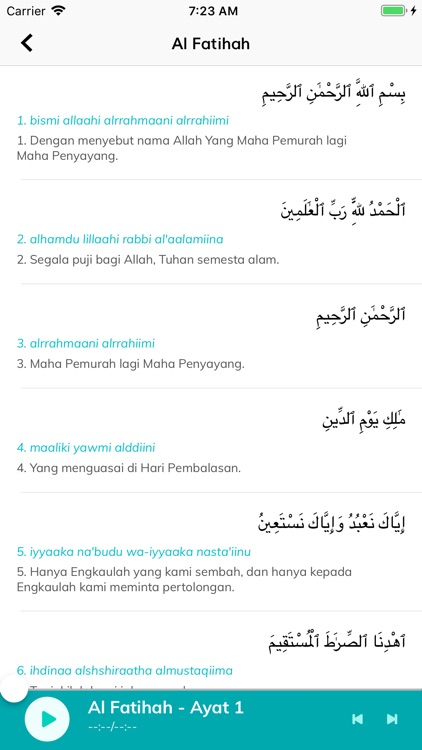 Carrier 7:23 AM
Al Fatihah
بِسْمِ ٱللَّهِ ٱلرَّحْمَٰنِ ٱلرَّحِيمِ
1. bismi allaahi alrrahmaani alrrahiimi
1. Dengan menyebut nama Allah Yang Maha Pemurah lagi
Maha Penyayang.
ٱلْحَمْدُ لِلَّهِ رَبِّ ٱلْعَٰلَمِينَ
2. alhamdu lillaahi rabbi al'aalamiina
2. Segala puji bagi Allah, Tuhan semesta alam.
ٱلرَّحْمَٰنِ ٱلرَّحِيمِ
3. alrrahmaani alrrahiimi
3. Maha Pemurah lagi Maha Penyayang.
مَٰلِكِ يَوْمِ ٱلدِّينِ
4. maaliki yawmi alddiini
4. Yang menguasai di Hari Pembalasan.
إِيَّاكَ نَعْبُدُ وَإِيَّاكَ نَسْتَعِينُ
5. iyyaaka na'budu wa-iyyaaka nasta'iinu
5. Hanya Engkaulah yang kami sembah, dan hanya kepada
Engkaulah kami meminta pertolongan.
ٱهْدِنَا ٱلصِّرَٰطَ ٱلْمُسْتَقِيمَ
6. ihdinaa alshshiraatha almustaqiima
Al Fatihah - Ayat 1
--:--/--:--